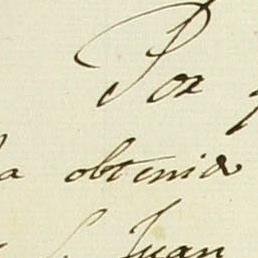 Por
a obtenido
S. Juan